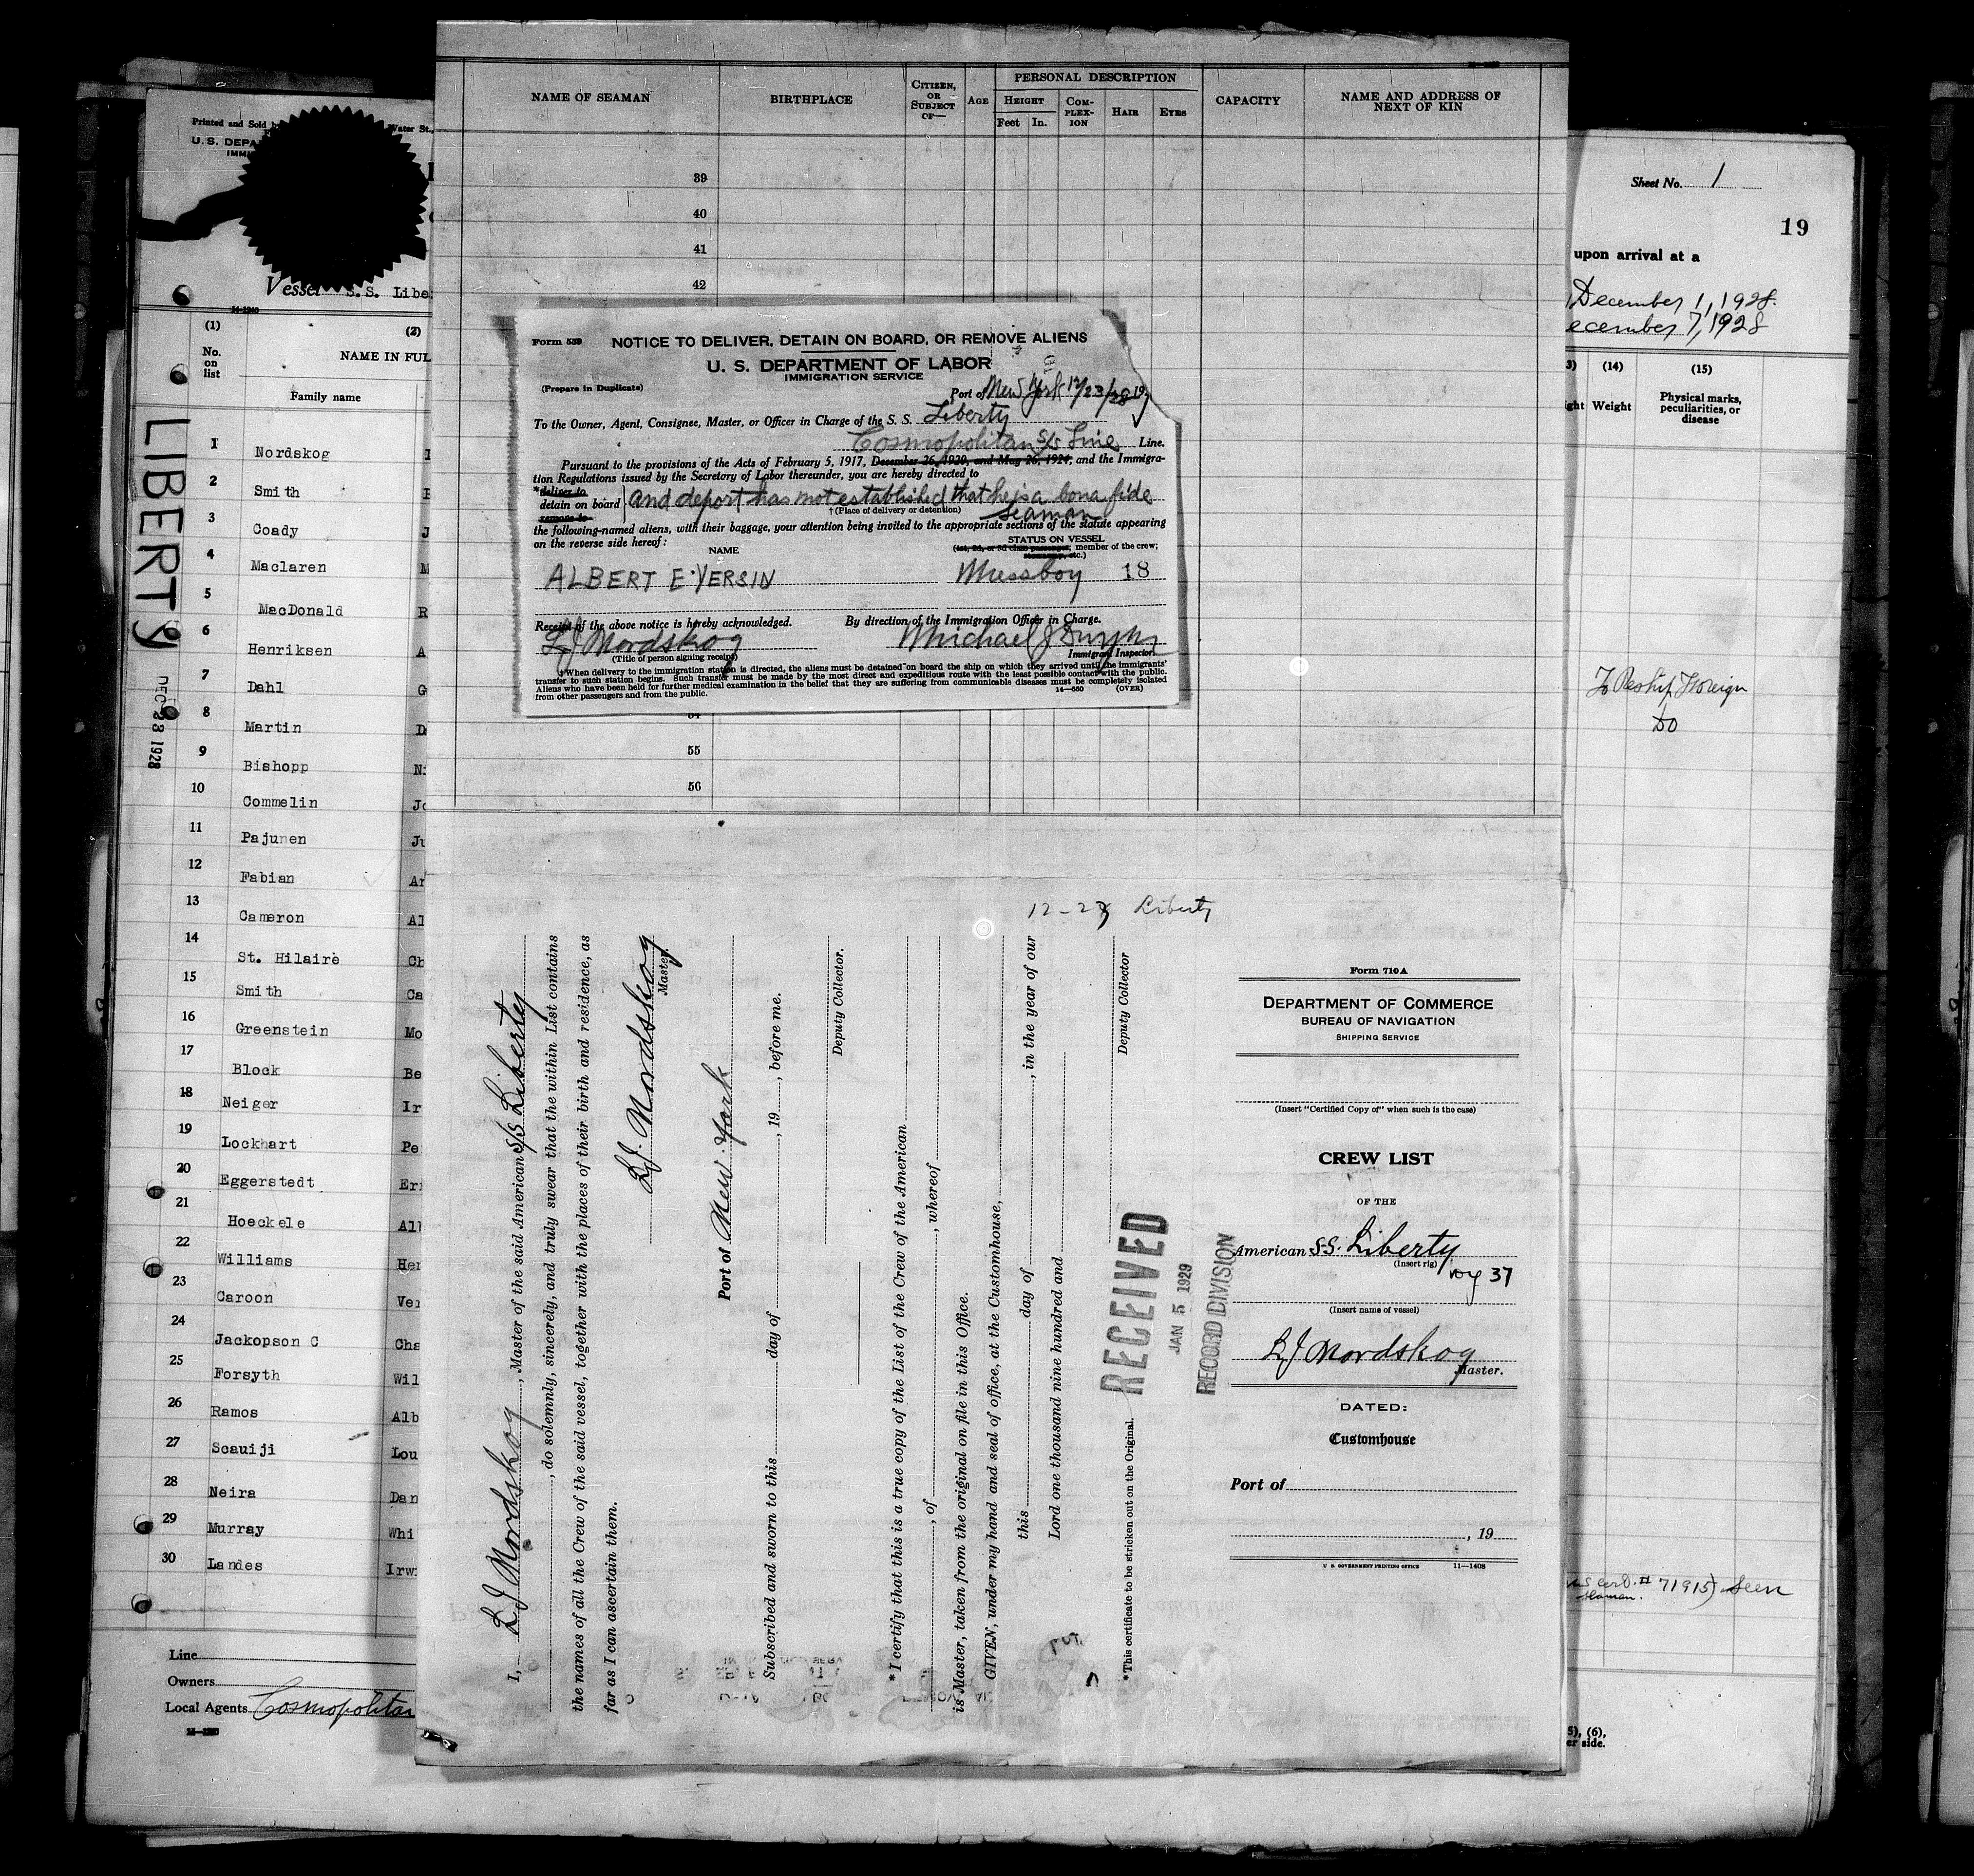 Printed and Sold by
Water St.,
U. S. DEPA
IMMI
Vessel S.S. Libe
(1)
(2)
No.
on
list
NAME IN FUL
Family name
LIBERTY
DEC 23 1928
1 Nordskog
2 Smith
3 Coady
4 Maclaren
5 MacDonald
6 Henriksen
7 Dahl
8 Martin
9 Bishopp
10 Commelin
11 Pajunen
12 Fabian
13 Cameron
14 St. Hilaire
15 Smith
16 Greenstein
17 Block
18 Neiger
19 Lockhart
20 Eggerstedt
21 Hoeckele
22 Williams
23 Caroon
24 Jackopson C
25 Forsyth
26 Ramos
27 Scauiji
28 Neira
29 Murray
30 Landes
Line
Owners
Local Agents Cosmopolitan
NAME OF SEAMAN
BIRTHPLACE
CITIZEN, OR SUBJECT OF—
AGE
PERSONAL DESCRIPTION
HEIGHT
Feet In.
COM-PLEX-ION
HAIR
EYES
CAPACITY
NAME AND ADDRESS OF NEXT OF KIN
39
40
41
42
54
55
56
Form 559
NOTICE TO DELIVER, DETAIN ON BOARD, OR REMOVE ALIENS
U. S. DEPARTMENT OF LABOR
IMMIGRATION SERVICE
(Prepare in Duplicate)
Port of New York 12/23/28 19
To the Owner, Agent, Consignee, Master, or Officer in Charge of the S. S. Liberty
Cosmopolitan S/S Line Line.
Pursuant to the provisions of the Acts of February 5, 1917, December 26, 1920, and May 26, 1924, and the Immigra-
tion Regulations issued by the Secretary of Labor thereunder, you are hereby directed to
*deliver to
detain on board
remove to
and deport has not established that he is a bona fide
seaman
†(Place of delivery or detention)
the following-named aliens, with their baggage, your attention being invited to the appropriate sections of the statute appearing
on the reverse side hereof:
NAME
STATUS ON VESSEL
(1st, 2d, or 3d class passenger, member of the crew;
stowaway, etc.)
ALBERT E. YERSIN Messboy 18
Receipt of the above notice is hereby acknowledged.
By direction of the Immigration Officer in Charge.
L J Nordskog
Michael J
(Title of person signing receipt)
Immigrant Inspector.
†When delivery to the immigration station is directed, the aliens must be detained on board the ship on which they arrived until the immigrants'
transfer to such station begins. Such transfer must be made by the most direct and expeditious route with the least possible contact with the public.
Aliens who have been held for further medical examination in the belief that they are suffering from communicable diseases must be completely isolated
from other passengers and from the public.
14—660 (OVER)
12-23 Liberty
I, L J Nordskog, Master of the said American S/S Liberty
, do solemnly, sincerely, and truly swear that the within List contains
the names of all the Crew of the said vessel, together with the places of their birth and residence, as
far as I can ascertain them.
L J. Nordskog
Master.
Port of New York
Subscribed and sworn to this day of , 19 , before me.
Deputy Collector.
*I certify that this is a true copy of the List of the Crew of the American
, of , whereof
is Master, taken from the original on file in this Office.
GIVEN, under my hand and seal of office, at the Customhouse,
this day of , in the year of our
Lord one thousand nine hundred and
Deputy Collector
*This certificate to be stricken out on the Original.
RECEIVED
JAN 5 1929
RECORD DIVISION
Form 710 A
DEPARTMENT OF COMMERCE
BUREAU OF NAVIGATION
SHIPPING SERVICE
(Insert "Certified Copy of" when such is the case)
CREW LIST
OF THE
American SS. Liberty
(Insert rig)
voy 37
(Insert name of vessel)
L J Nordskog
Master.
DATED:
Customhouse
Port of
, 19
U. S. GOVERNMENT PRINTING OFFICE 11—1408
Sheet No. 1
19
upon arrival at a
December 1, 1928.
ecember 7, 1928
(14)
(15)
Weight
Physical marks, peculiarities, or disease
To Reship Foreign
do
cert. # 71915) seen
seaman.
5), (6),
er side.